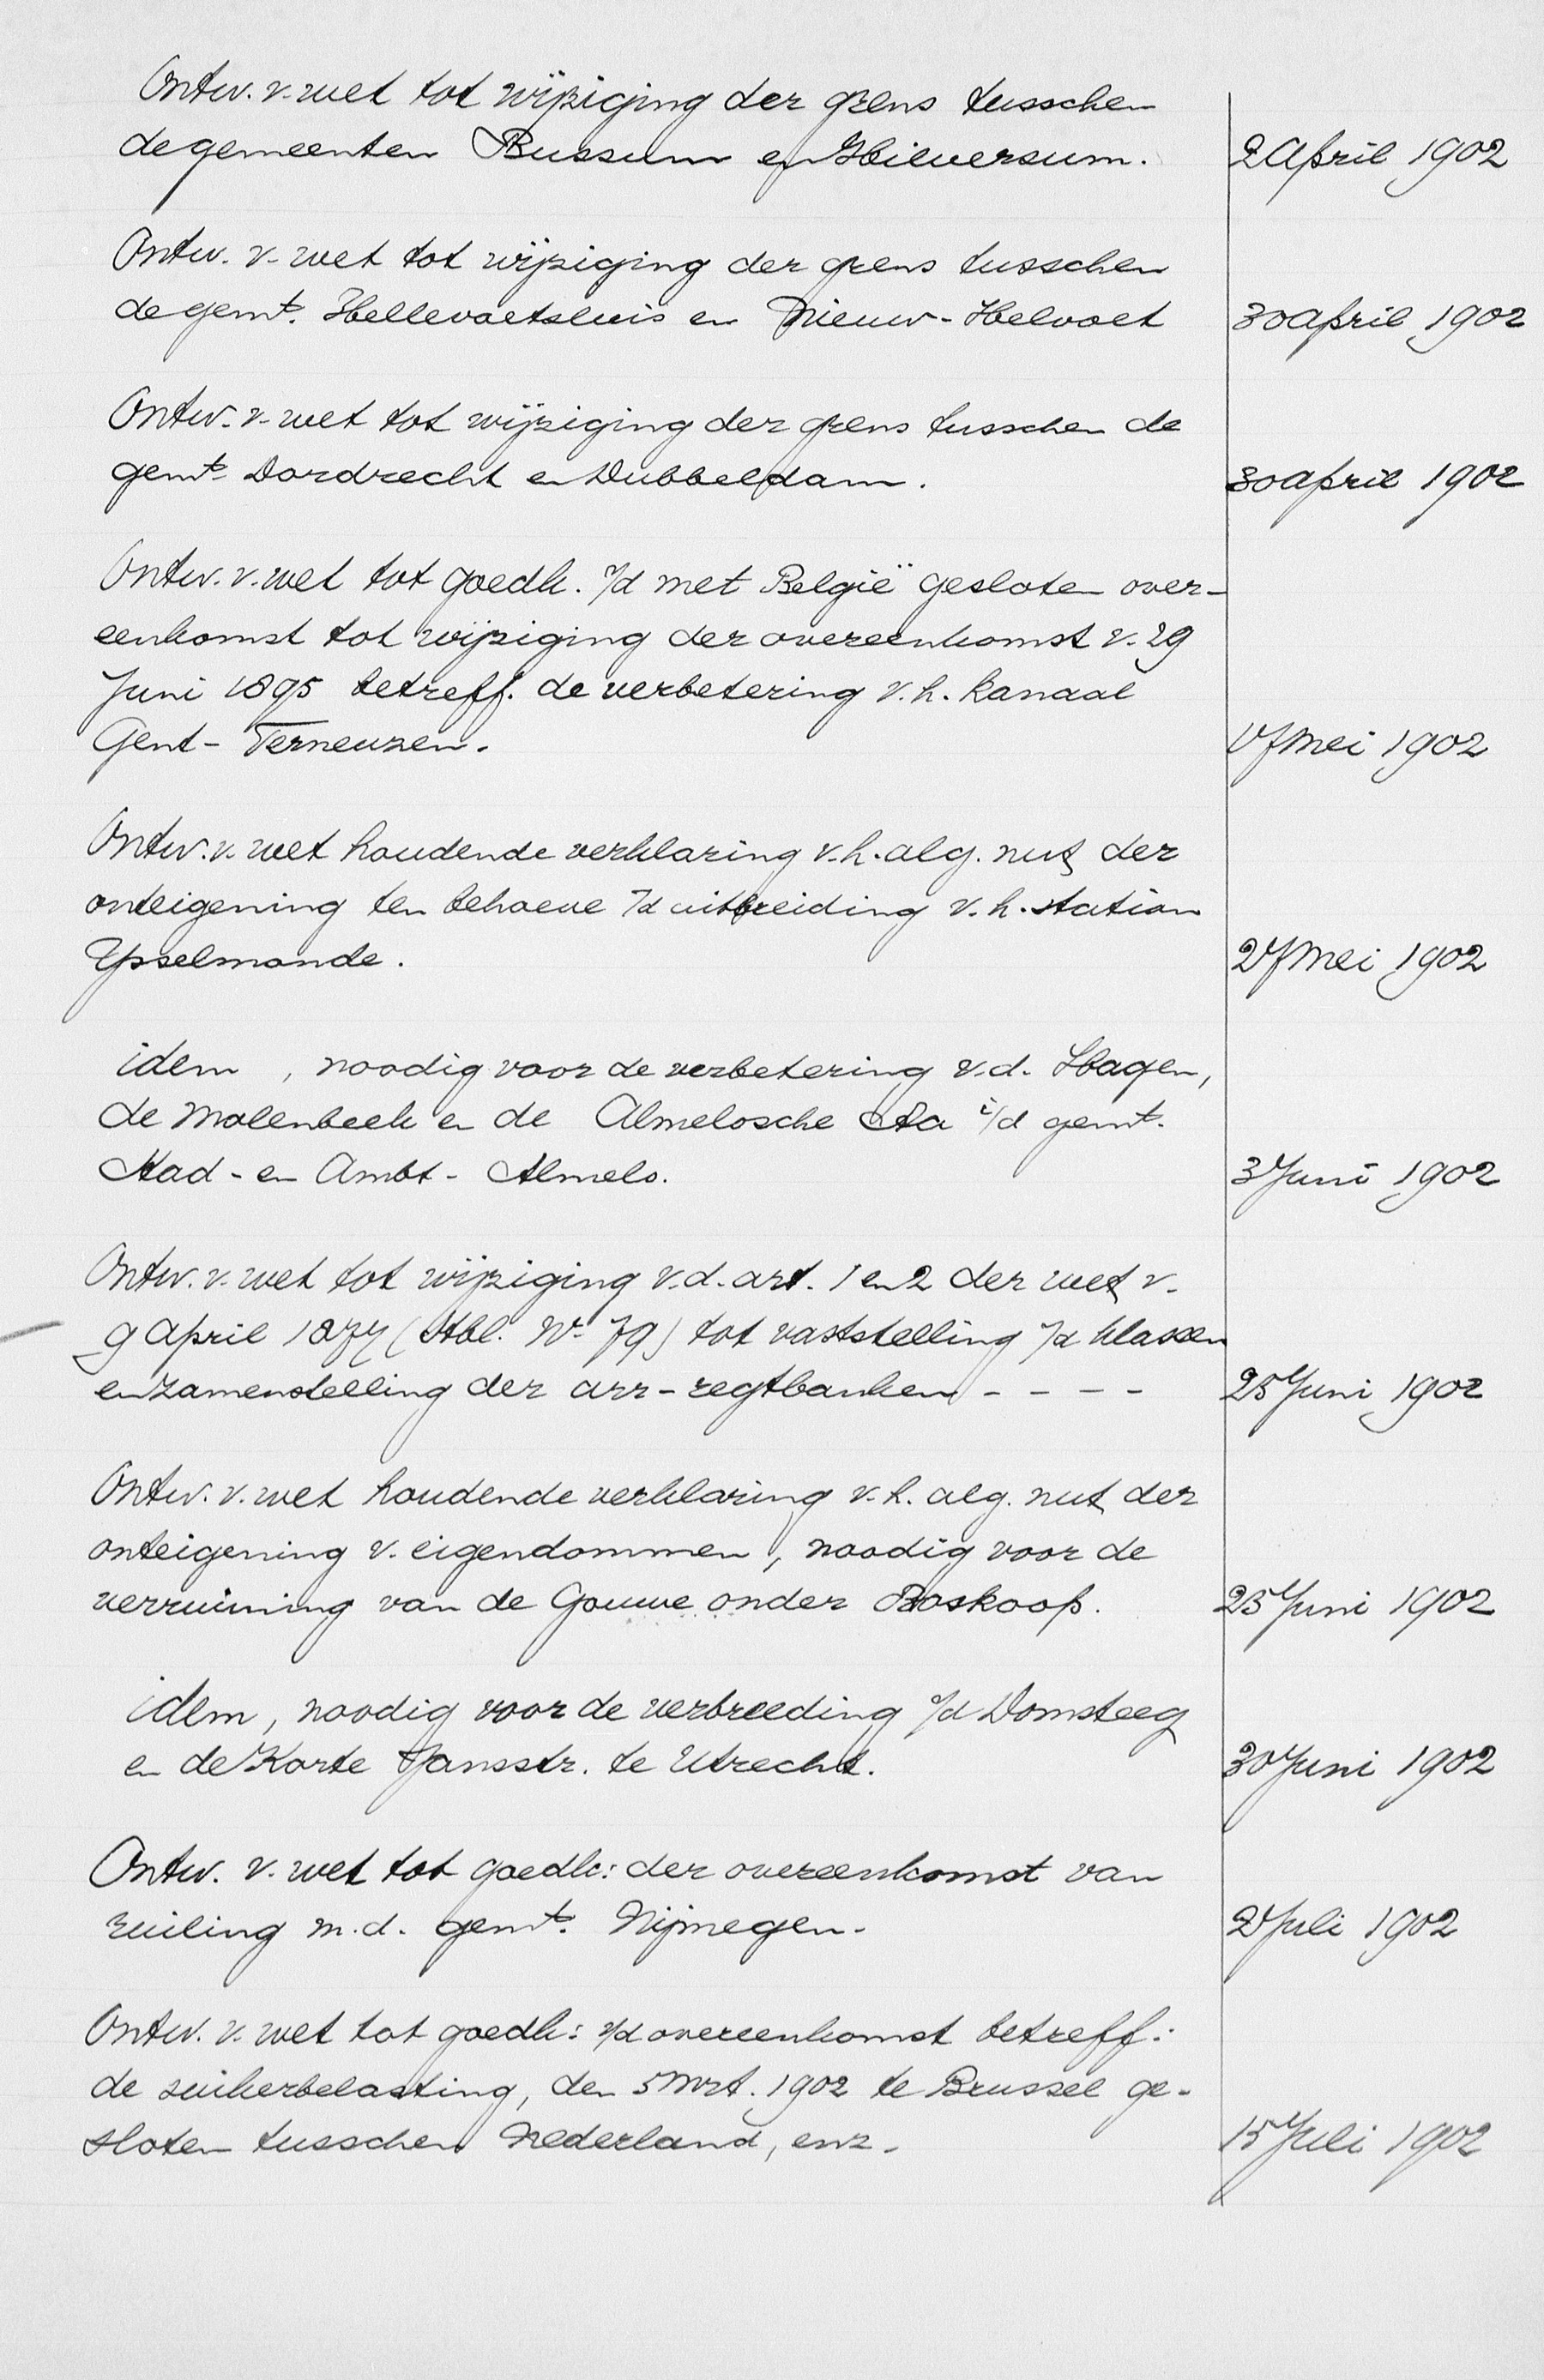 Ontw. v. wet tot wijziging der grens tusschen
de gemeenten Bussum en Hilversum. 2 April 1902
Ontw. v. wet tot wijziging der grens tusschen
de gemt. Hellevoetsluis en Nieuw-Helvoet 30 april 1902
Ontw. v. wet tot wijziging der grens tusschen de
gemt. Dordrecht en Dubbeldam. 30 april 1902
Ontw. v. wet tot goedk. v/d met België gesloten over-
eenkomst tot wijziging der overeenkomst v. 29
Juni 1895 betreff. de verbetering v.h. kanaal
Gent - Terneuzen. 17 mei 1902
Ontw. v. wet houdende verklaring v.h. alg. nut der
onteigening ten behoeve v/d uitbreiding v.h. station
IJsselmonde. 27 mei 1902
idem, noodig voor de verbetering v.d. Hagen,
de Molenbeek en de Almelosche Aa i/d gemt.
Stad- en Ambt- Almelo. 3 Juni 1902
Ontw. v. wet tot wijziging v.d. art. 1 en 2 der wet v.
9 April 1877 (Stbl. No. 79) tot vaststelling v/d klassen
en zamenstelling der arr-regtbanken - - - - 25 Juni 1902
Ontw. v. wet houdende verklaring v.h. alg. nut der
onteigening v. eigendommen, noodig voor de
verruiming van de Gouwe onder Boskoop. 25 Juni 1902
idem, noodig voor de verbreeding v/d Domsteeg
en de Korte Jansstr. te Utrecht. 30 Juni 1902
Ontw. v. wet tot goedk: der overeenkomst van
ruiling m.d. gemt. Nijmegen. 2 Juli 1902
Ontw. v. wet tot goedk: v/d overeenkomst betreff:
de suikerbelasting, den 5 Mrt. 1902 te Brussel ge-
sloten tusschen Nederland, enz. 15 Juli 1902